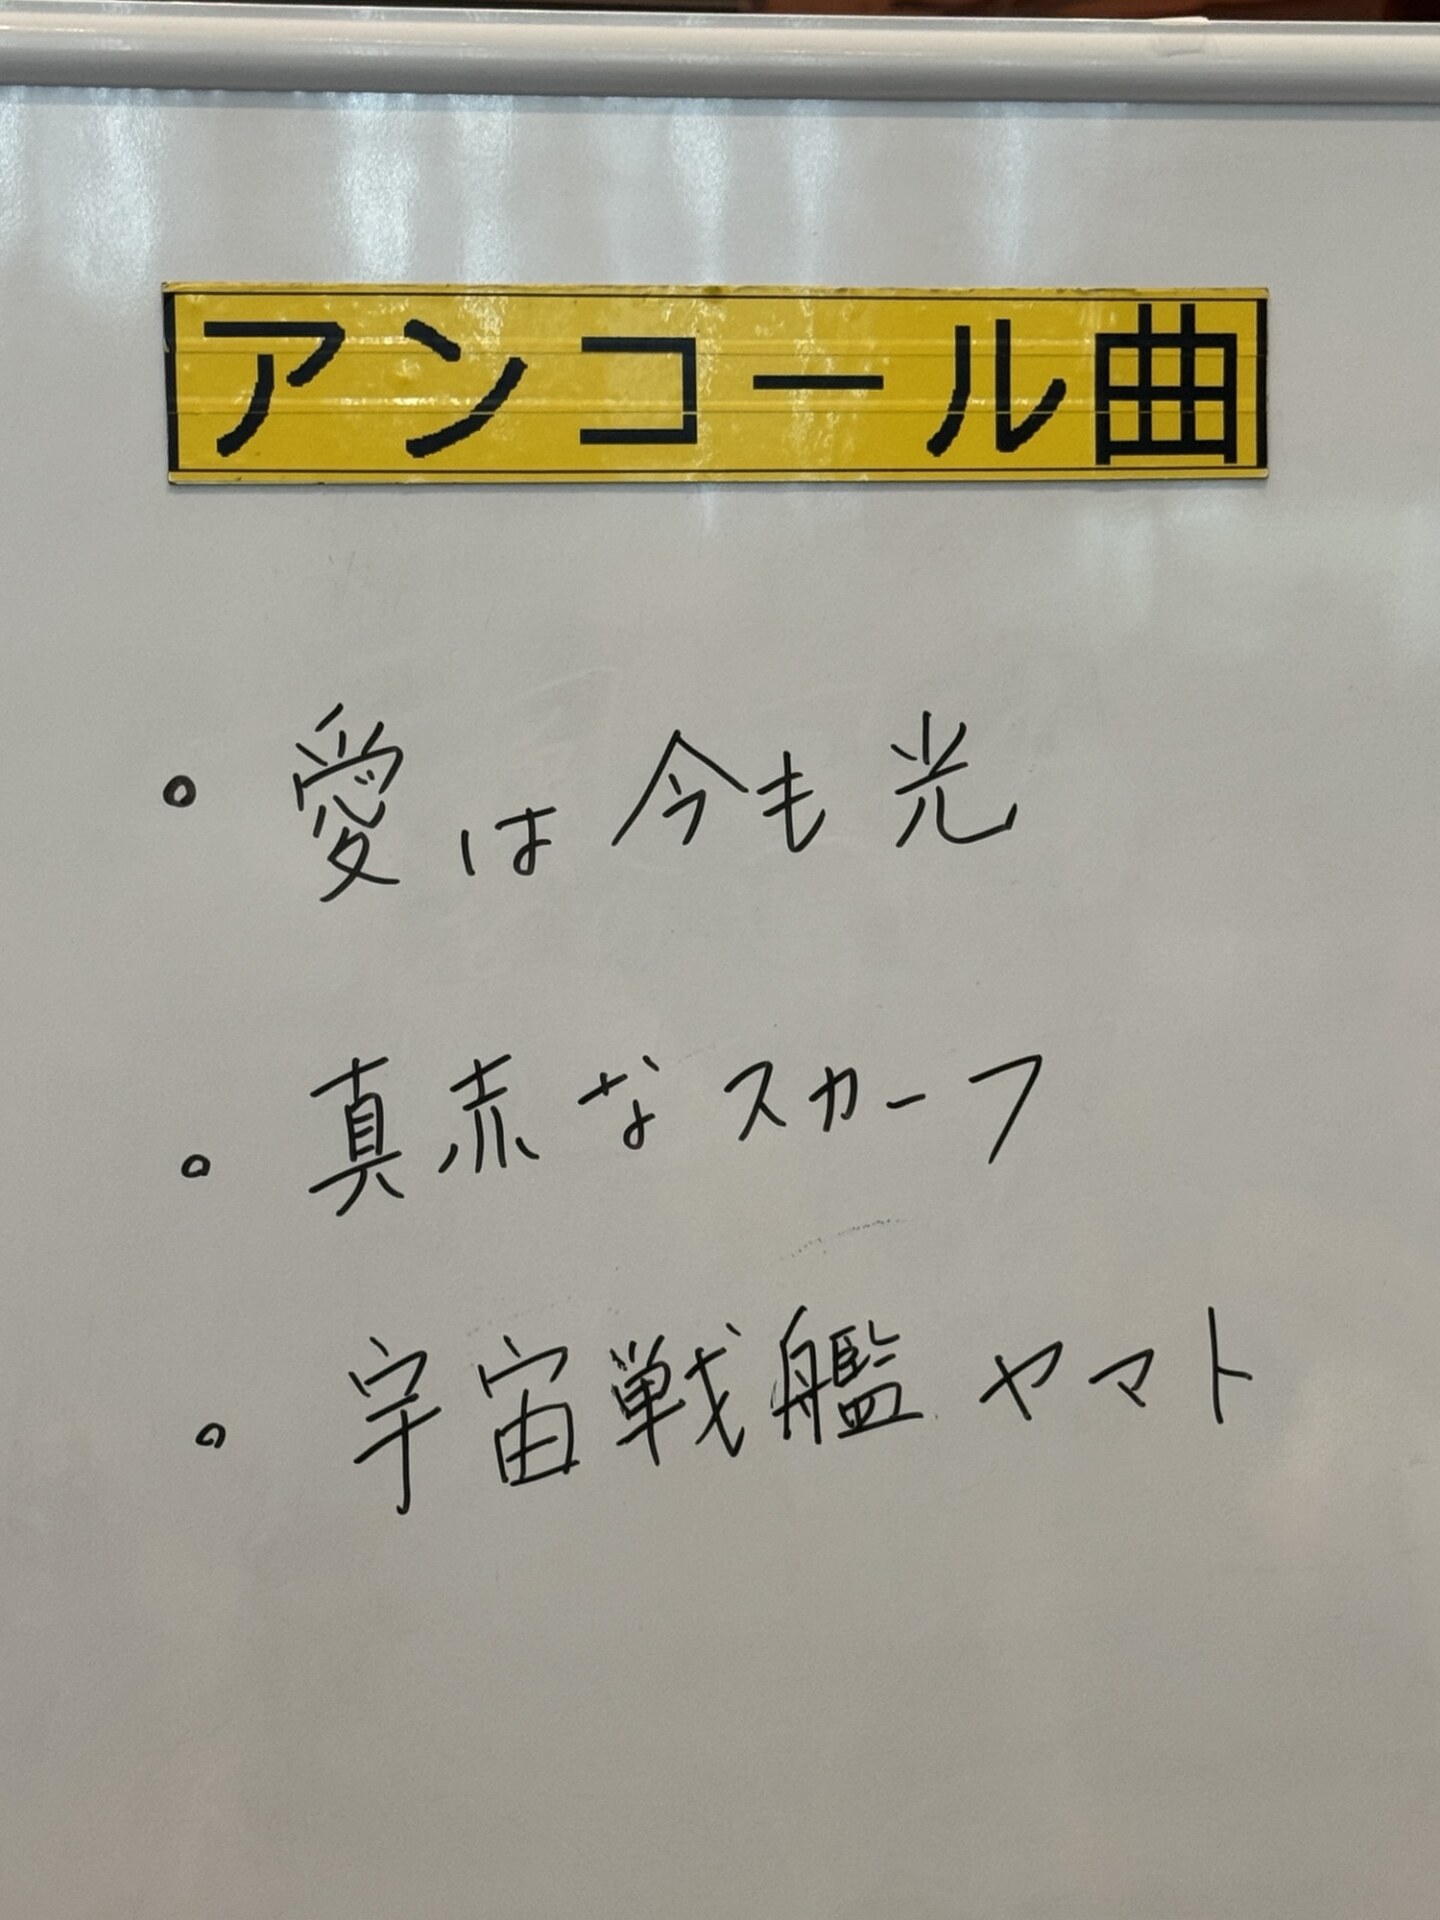 アンコール曲
・ 愛は今も光
・ 真赤なスカーフ
・ 宇宙戦艦ヤマト